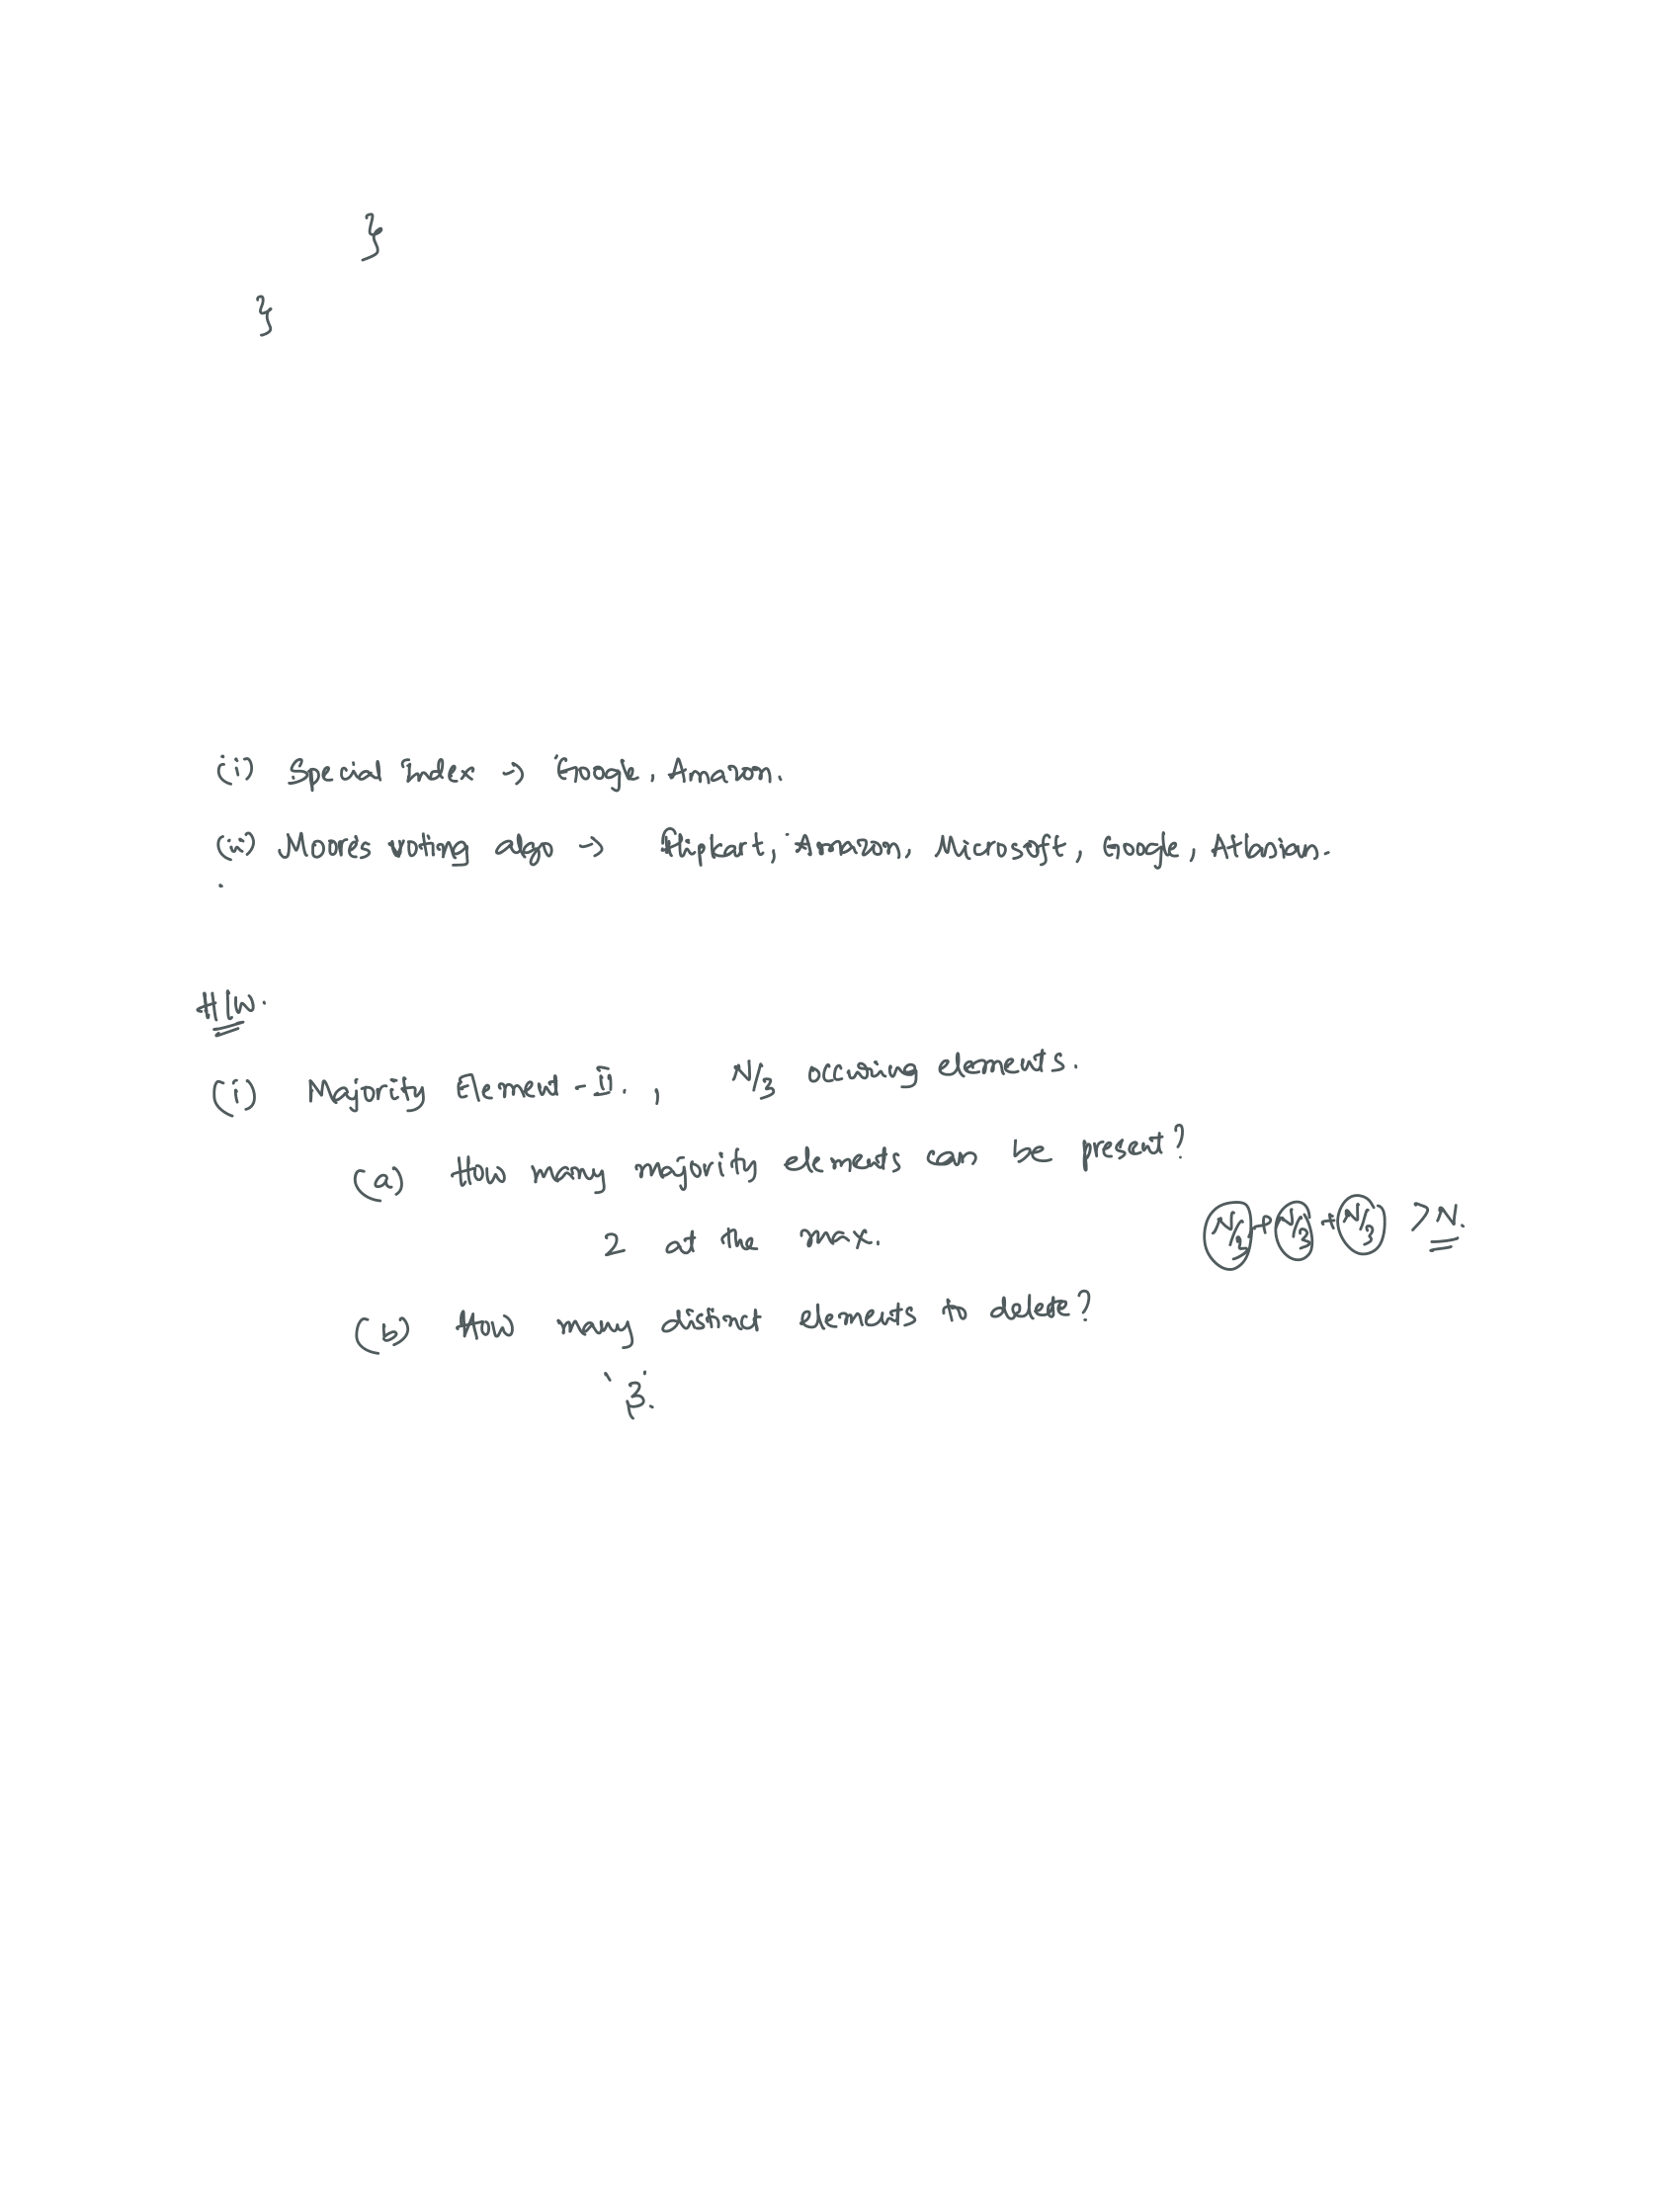 }
}
(i) Special Index → Google, Amazon.
(ii) Moore's voting algo → Flipkart, Amazon, Microsoft, Google, Atlasian.
H/W.
(i) Majority Element - II. , N/3 occuring elements.
(a) How many majority elements can be present?
2 at the max.
N/3 + N/3 + N/3 > N.
(b) How many distinct elements to delete?
3.